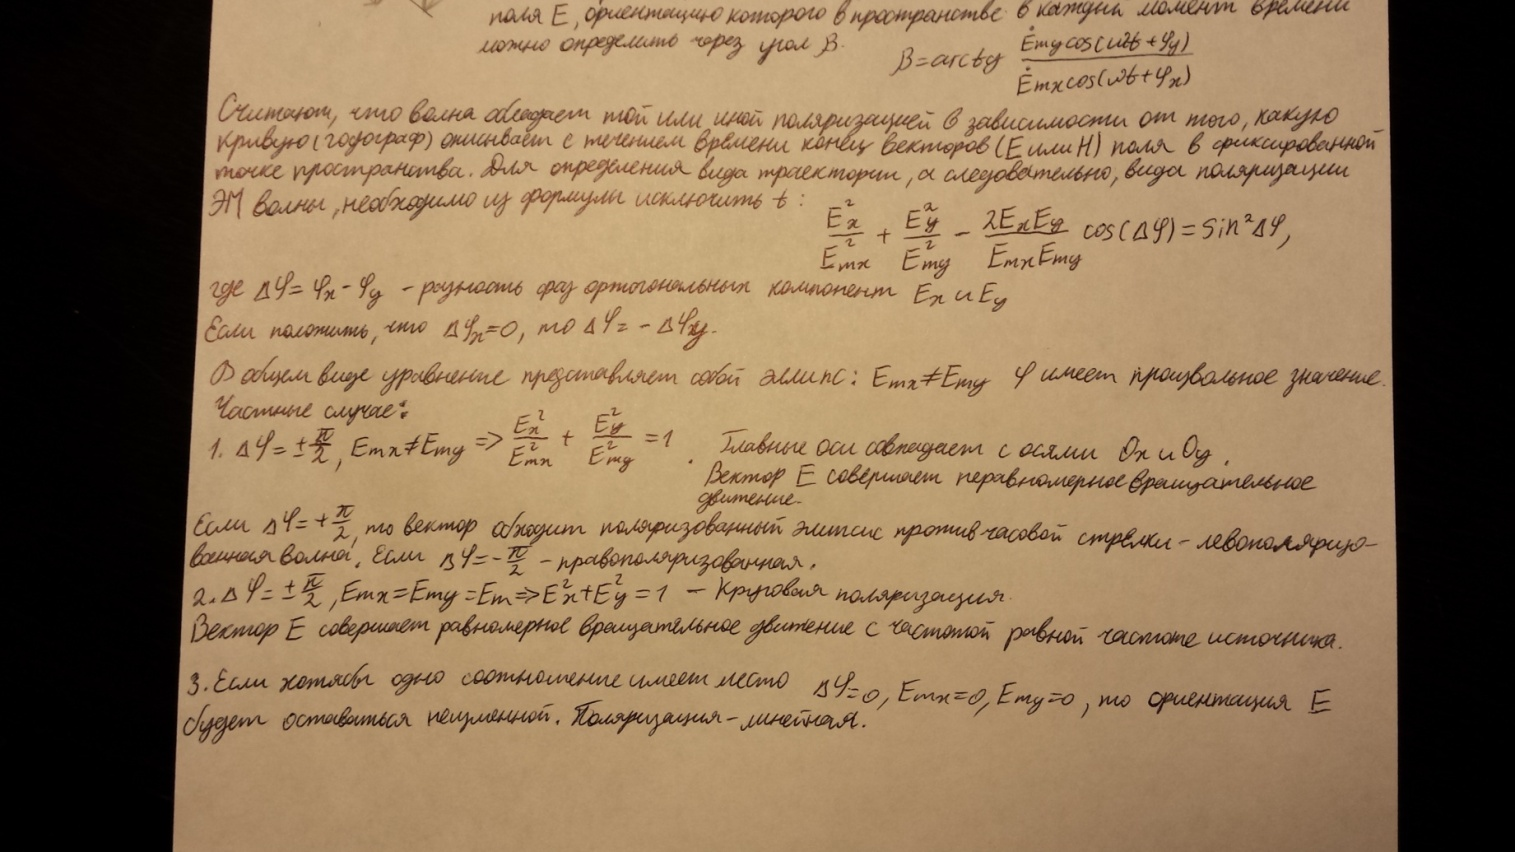 поля E, ориентацию которого в пространстве в каждый момент времени
можно определить через угол β.
β = arctg Ėmy cos(ωt + φy) / Ėmx cos(ωt + φx)
Считают, что волна обладает той или иной поляризацией в зависимости от того, какую
кривую (годограф) описывает с течением времени конец векторов (E или H) поля в фиксированной
точке пространства. Для определения вида траектории, а следовательно, вида поляризации
ЭМ волны, необходимо из формулы исключить t:
Ex²/Emx² + Ey²/Emy² - 2ExEy/EmxEmy cos(Δφ) = sin²Δφ,
где Δφ = φx - φy - разность фаз ортогональных компонент Ex и Ey
Если положить, что Δφx=0, то Δφ = - Δφxy.
В общем виде уравнение представляет собой эллипс: Emx≠Emy φ имеет произвольное значение.
Частные случае:
1. Δφ = ± π/2, Emx≠Emy => Ex²/Emx² + Ey²/Emy² = 1. Главные оси совпадает с осями Ox и Oy.
Вектор E совершает неравномерное вращательное
движение.
Если Δφ = + π/2, то вектор обходит поляризованный элипсис против часовой стрелки - левополяризо-
ванная волна. Если Δφ = - π/2 - правополяризованная.
2. Δφ = ± π/2, Emx = Emy = Em => Ex² + Ey² = 1 - Круговая поляризация.
Вектор E совершает равномерное вращательное движение с частотой равной частоте источника.
3. Если хотябы одно соотношение имеет место Δφ=0, Emx=0, Emy=0, то ориентация E
будет оставаться неизменной. Поляризация - линейная.